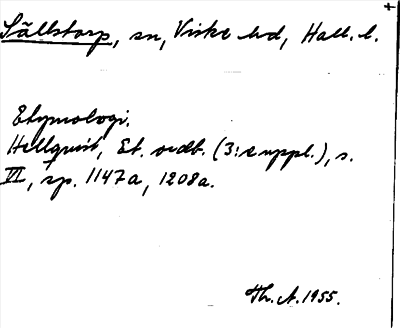 Sällstorp, sn, Viske hd, Hall. l.
Etymologi.
Hellquist, Et. ordb. (3:e uppl.), s.
VI, sp. 1147a, 1208a.
Th. A. 1955.